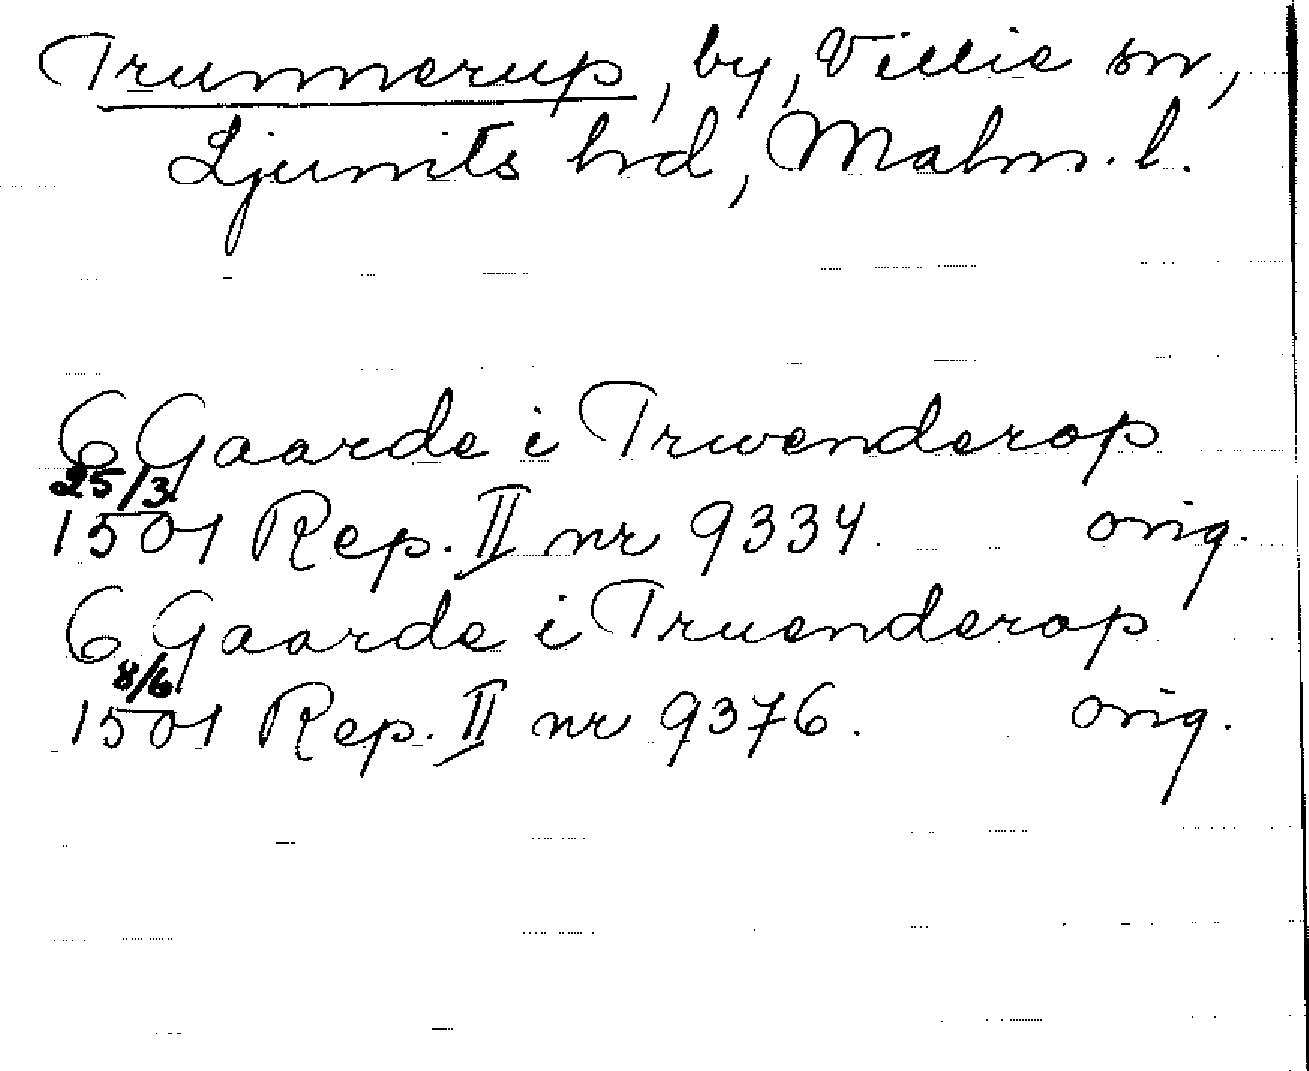 Trunnerup, by, Villie sn,
Ljunits hrd, Malm. l.
6 Gaarde i Trwenderop
25/3
1501 Rep. II nr 9334 orig.
6 Gaarde i Truenderop
8/6
1501 Rep. II nr 9376. orig.